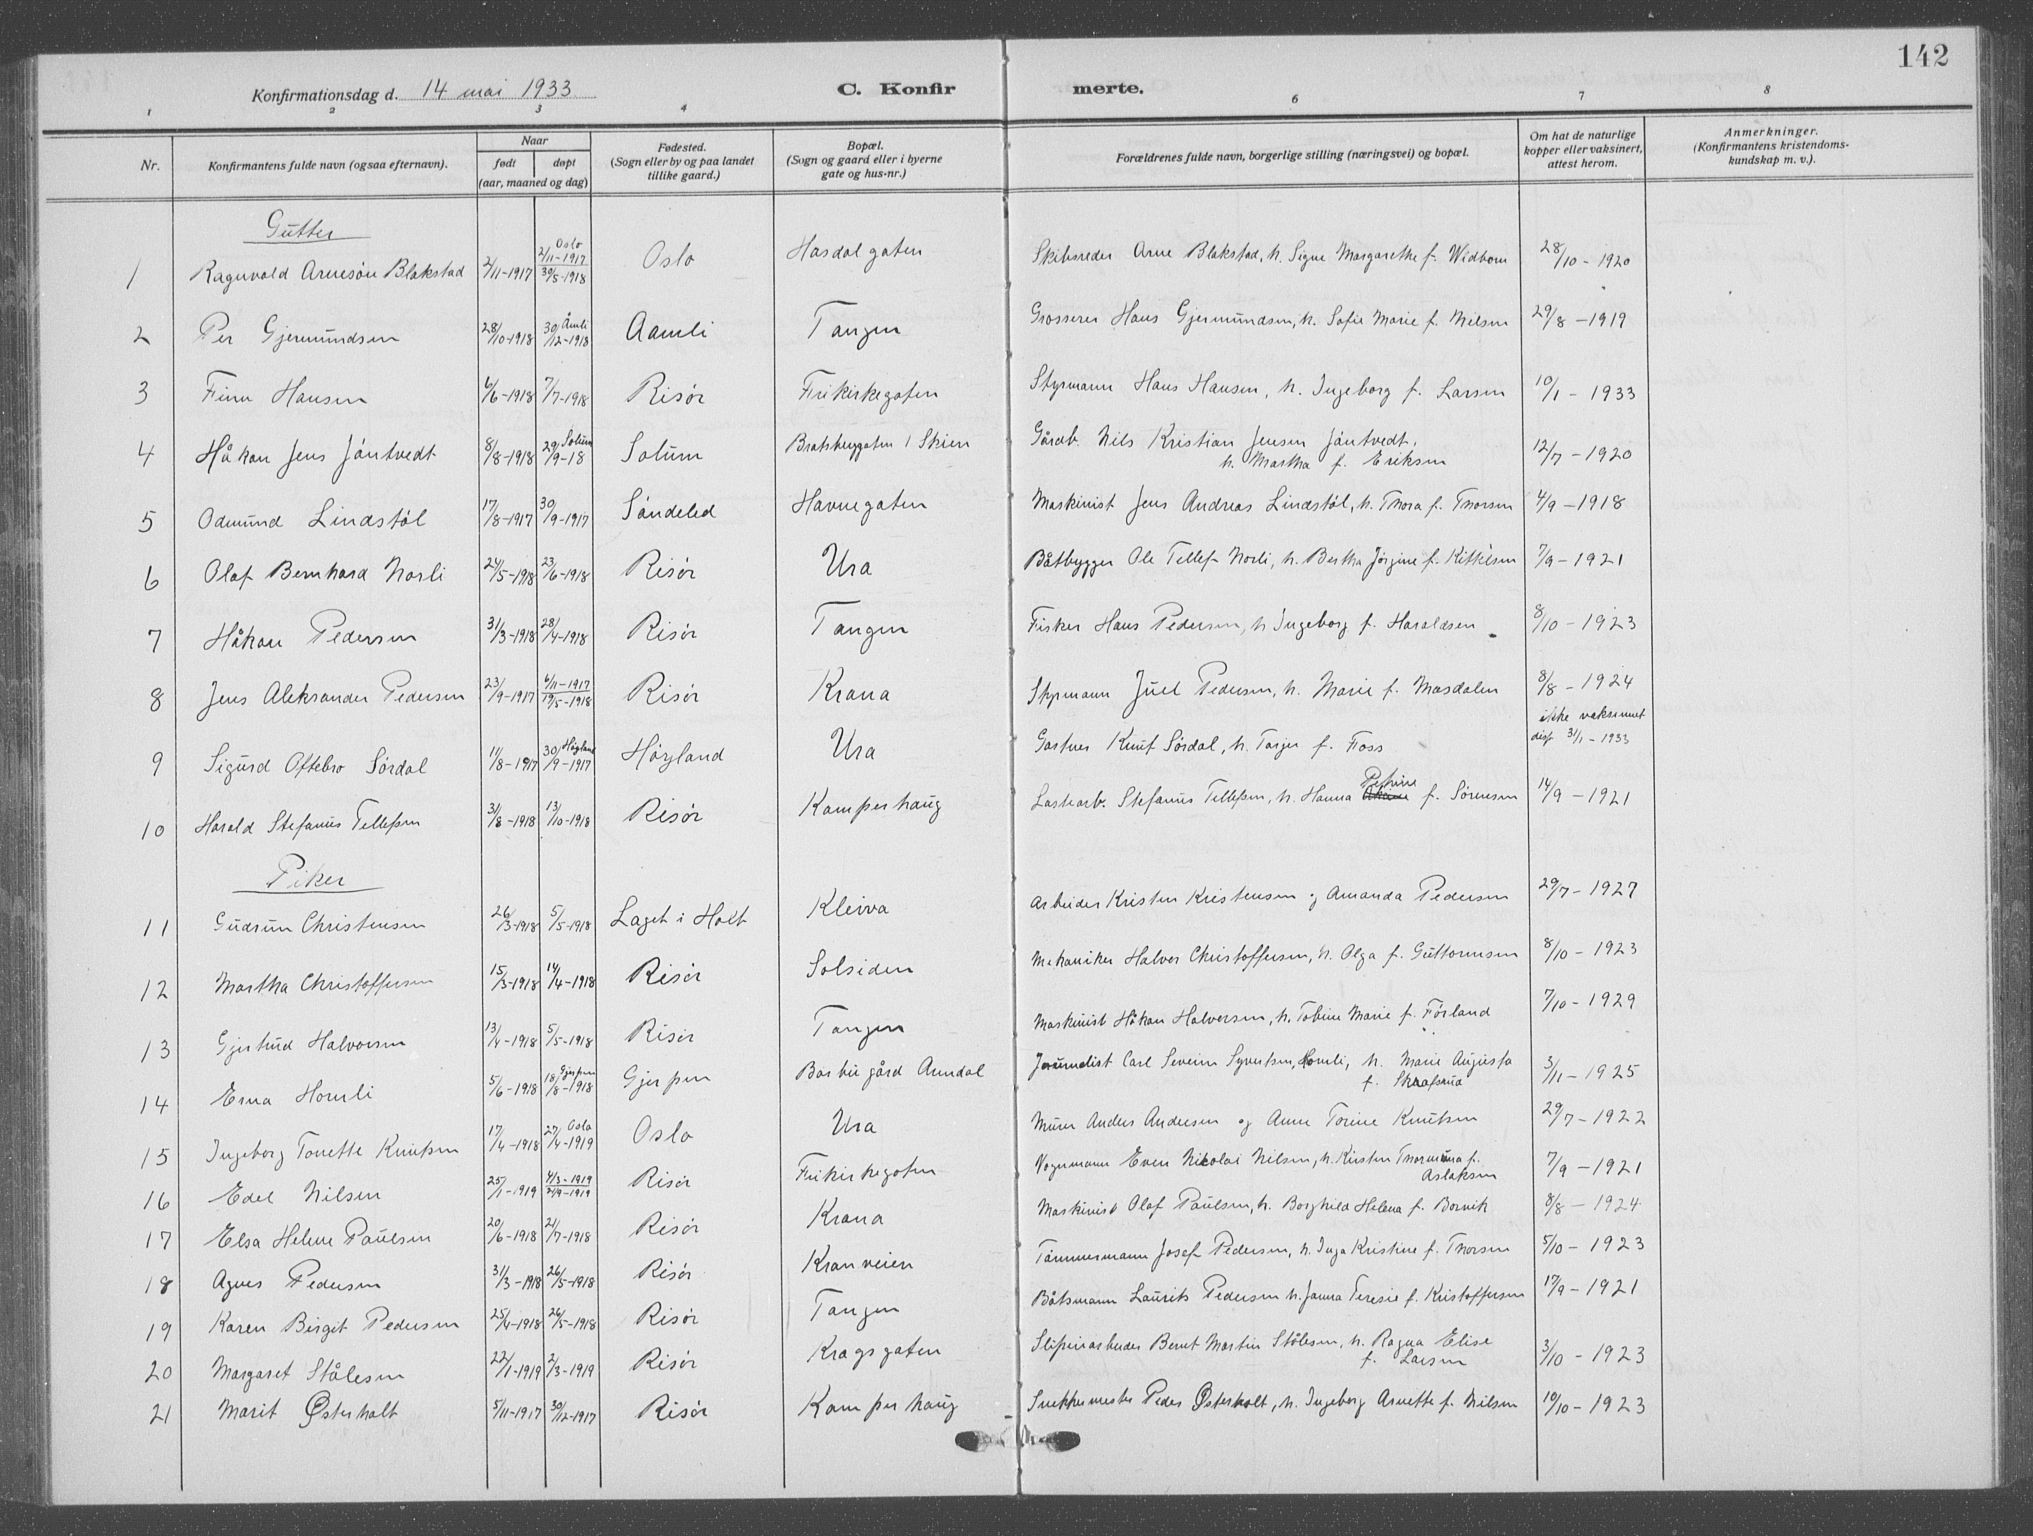 142
Konfirmationsdag d. 14 mai 1933 C. Konfir merte.
1 2 3 4 6 7 8
Nr.
Konfirmantens fulde navn (ogsaa efternavn).
Naar
født
døpt
(aar, maaned og dag)
Fødested.
(Sogn eller by og paa landet
tillike gaard.)
Bopæl.
(Sogn og gaard eller i byerne
gate og hus-nr.)
Forældrenes fulde navn, borgerlige stilling (næringsvei) og bopæl.
Om hat de naturlige
kopper eller vaksinert,
attest herom.
Anmerkninger.
(Konfirmantens kristendoms-
kundskap m. v.).
Gutter
1 Ragnvald Arnesøn Blakstad 2/11-1917 Oslo 2/11-1917 30/5-1918 Oslo Hasdalgaten Skibsreder Arne Blakstad, h. Signe Margarethe f. Widbom 28/10-1920
2 Per Gjermundsen 28/10-1918 Åmli 30/12-1918 Aamli Tangen Grosserer Hans Gjermundsen, h. Sofie Marie f. Nilsen 29/8-1919
3 Finn Hansen 6/6-1918 7/7-1918 Risør Frikirkegaten Styrmann Hans Hansen, h. Ingeborg f. Larsen 10/1-1933
4 Håkon Jens Jøntvedt 8/8-1918 Solum 29/9-18 Solum Bratsbergaten 1 Skien Gårdb. Nils Kristian Jensen Jøntvedt,
h. Martha f. Eriksen 12/7-1920
5 Odmund Lindstøl 17/8-1917 30/9-1917 Søndeled Havnegaten Maskinist Jens Andreas Lindstøl, h. Thora f. Thorsen 4/9-1918
6 Olaf Bernhard Norli 24/5-1918 23/6-1918 Risør Ura Båtbygger Ole Tellef Norli, h. Bertha Jørgine f. Kittelsen 7/9-1921
7 Håkon Pedersen 31/3-1918 28/4-1918 Risør Tangen Fisker Hans Pedersen, h. Ingeborg f. Haraldsen 8/10-1923
8 Jens Aleksander Pedersen 23/9-1917 6/11-1917 19/5-1918 Risør Krana Styrmann Juel Pedersen, h. Marie f. Masdalen 8/8-1924
9 Sigurd Oftebro Sørdal 11/8-1917 Høgland 30/9-1917 Høgland Ura Gartner Knut Sørdal, h. Torjer f. Foss ikke vaksinert
disp 31/1-1933
10 Harald Stefanus Tellefsen 31/8-1918 13/10-1918 Risør Kamperhaug Lastearb. Stefanus Tellefsen, h. Hanna Petrine f. Sørensen 14/9-1921
Piker
11 Gudrun Christensen 26/3-1918 5/5-1918 Laget i Holt Kleiva Arbeider Kristen Kristensen og Amanda Pedersen 29/7-1927
12 Martha Christoffersen 15/3-1918 14/4-1918 Risør Solsiden Mekaniker Halvor Christoffersen, h. Olga f. Guttormsen 8/10-1923
13 Gjertrud Halvorsen 13/4-1918 5/5-1918 Risør Tangen Maskinist Håkon Halvorsen, h. Tobine Marie f. Førland 7/10-1929
14 Erna Homli 5/6-1918 Gjerpen 18/8-1918 Gjerpen Barbu gård Arendal Journalist Carl Severin Syvertsen, Homli, h. Marie Augusta
f. 3/11-1925
15 Ingeborg Tonette Knutsen 17/4-1918 Oslo 27/4-1919 Oslo Ura Murer Anders Andersen og Anne Torine Knutsen 29/7-1922
16 Edel Nilsen 25/1-1919 4/3-1919 21/9-1919 Risør Frikirkegaten Vognmann Even Nikolai Nilsen, h. Kirsten Thormine f.
Aslaksen 7/9-1921
17 Elsa Helene Paulsen 20/6-1918 21/7-1918 Risør Krana Maskinist Olaf Paulsen, h. Borghild Helena f. Borvik 8/8-1924
18 Agnes Pedersen 31/3-1918 26/5-1918 Risør Kranveien Tømmermann Josef Pedersen, h. Inga Kristine f. Thorsen 5/10-1923
19 Karen Birgit Pedersen 25/4-1918 26/5-1918 Risør Tangen Båtsmann Laurits Pedersen h. Janna Teresie f. Kristoffersen 17/9-1921
20 Margaret Stålesen 22/1-1919 2/3-1919 Risør Kragsgaten Sliperiarbeider Bernt Martin Stålesen, h. Ragna Elise
f. Larsen 3/10-1923
21 Marit Østerholt 5/11-1917 30/12-1917 Risør Kamperhaug Snekkermester Peder Østerholt, h. Ingeborg Arnette f. Nilsen 10/10-1923